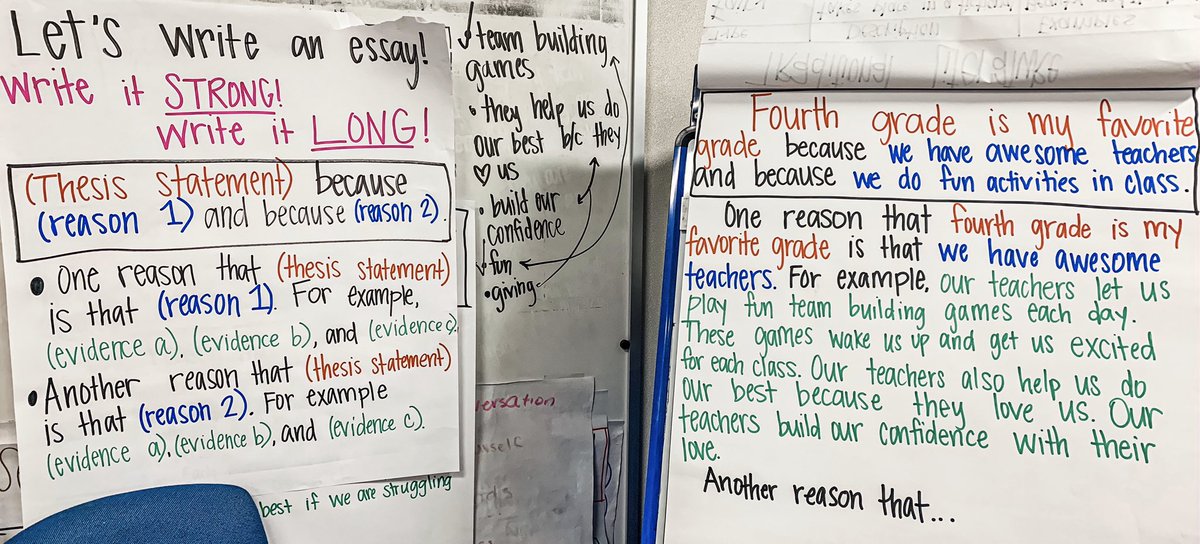 Let's write an essay!
Write it STRONG!
Write it LONG!
(Thesis statement) because
(reason 1) and because (reason 2).
• One reason that (thesis statement)
is that (reason 1). For example,
(evidence a), (evidence b), and (evidence c).
• Another reason that (thesis statement)
is that (reason 2). For example
(evidence a), (evidence b), and (evidence c).
best if we are struggling
✓ team building
games
• they help us do
our best b/c they
♡ us
• build our
confidence
✓ fun
• giving
Description
Examples
Traditional Literature
Fourth grade is my favorite
grade because we have awesome teachers
and because we do fun activities in class.
One reason that fourth grade is my
favorite grade is that we have awesome
teachers. For example, our teachers let us
play fun team building games each day.
These games wake us up and get us excited
for each class. Our teachers also help us do
our best because they love us. Our
teachers build our confidence with their
love.
Another reason that...